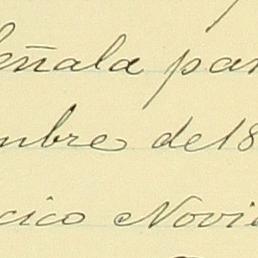 eñala par
mbre de 18
cico Novie